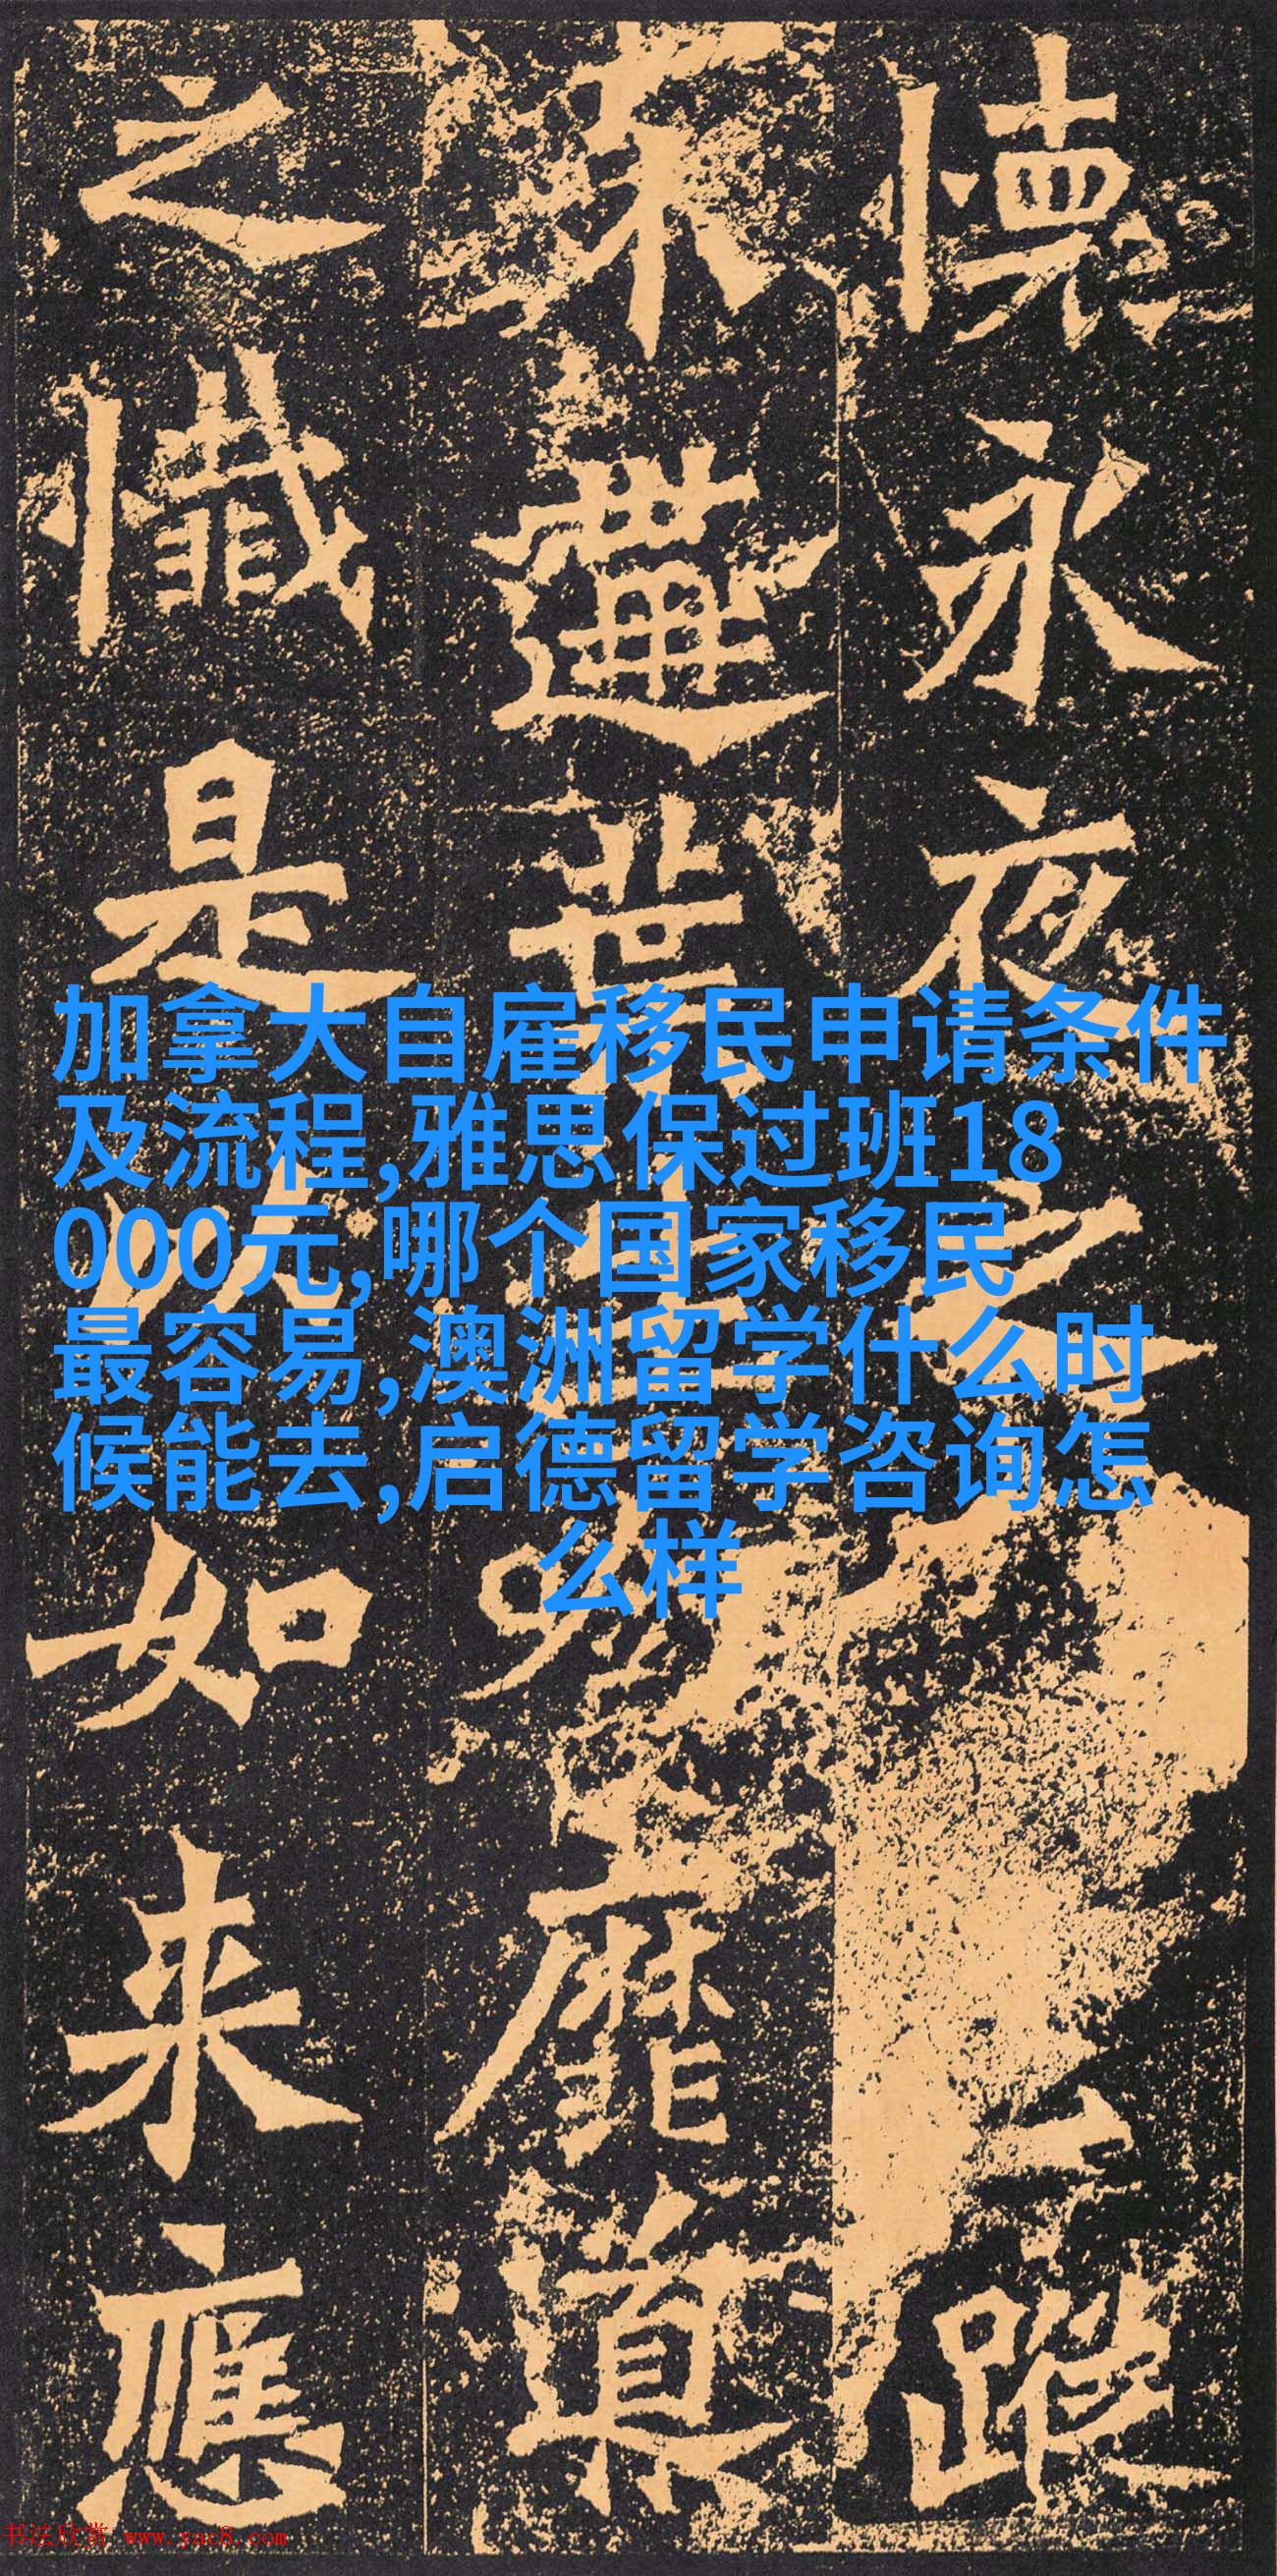 懷永夜
蹤
世
靡真
之懺是以如来應
加拿大自雇移民申请条件
及流程,雅思保过班18
000元,哪个国家移民
最容易,澳洲留学什么时
候能去,启德留学咨询怎
么样
书法欣赏 www.yac8.com